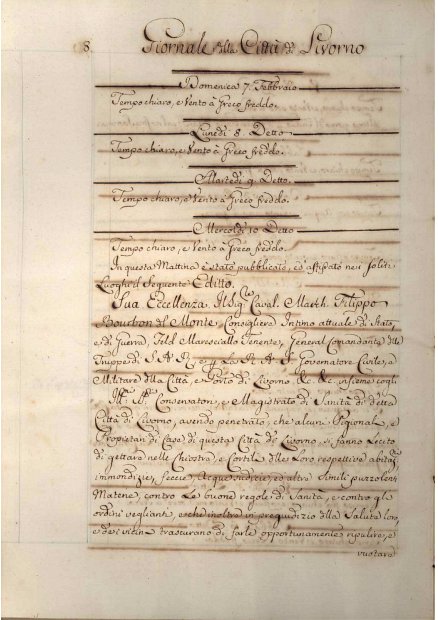 8. Giornale della Città di Livorno
Domenica 7. Febbraio
Tempo chiaro, e Vento à Greco freddo.
Lunedì 8. Detto
Tempo chiaro, e Vento à Greco freddo.
Martedì 9. Detto.
Tempo chiaro, e Vento à Greco freddo.
Mercoldì 10 Detto
Tempo chiaro, e Vento à Greco freddo.
In questa Mattina è stato pubblicato, ed affissato nei soliti
Luoghi il Seguente Editto.
Sua Eccellenza Il Sig.re Caval. March. Filippo
Bourbon del Monte, Consigliere Intimo attuale di Stato,
e di Guerra, Feld Maresciallo Tenente, General Comandante delle
Truppe di S. A. R. e Governatore Civile, e
Militare della Città, e Porto di Livorno &c. &c. insieme cogli
Ill.mi SS.ri Conservatori, e Magistrato di Sanità di detta
Città di Livorno, avendo penetrato, che alcuni Pigionali, e
Proprietari di Case di questa Città di Livorno, si fanno Lecito
di gettare nelle Chiostre, e Cortili delle Loro respettive abitaz.
immondizie, fecce, Acque sudicie, ed altre Simili puzzolenti
Materie, contro Le buone regole di Sanità, e contro gl'
ordini veglianti, e che inoltre in pregiudizio della Salute loro,
e dei vicini trascurano di farle opportunamente ripulire, e
vuotare